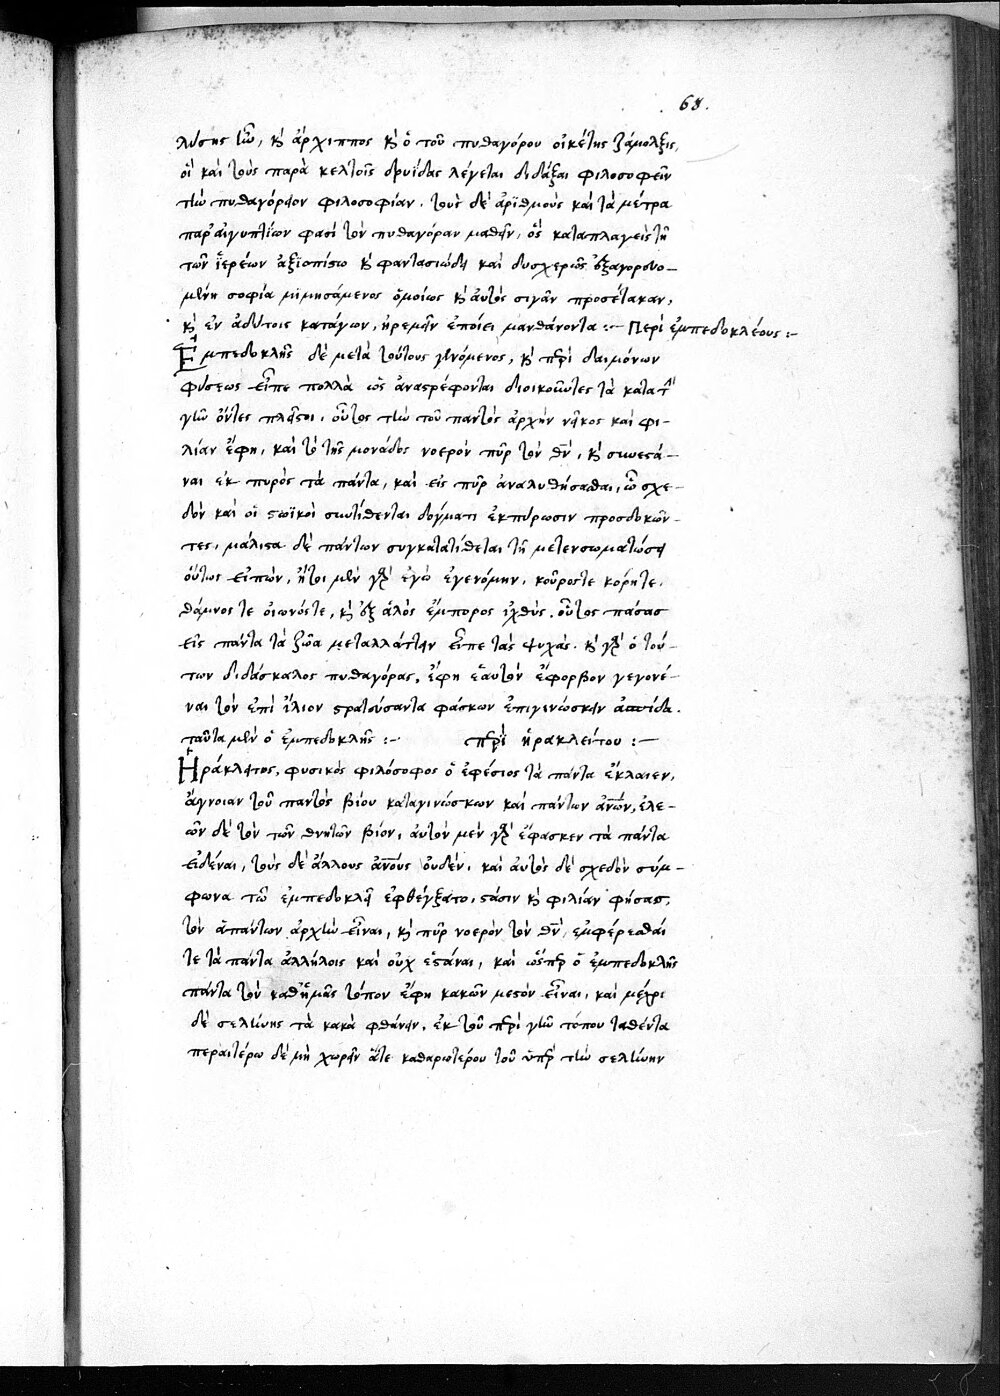 68.
λύσης ἰῶ, κὶ ἄρχιππος κὶ ὁ τοῦ πυθαγόρου οἰκέτης ζάμολξις,
οἳ καὶ τοὺς παρὰ κελτοῖς δρυίδας λέγεται διδάξαι φιλοσοφεῖν
τὴν πυθαγόρειον φιλοσοφίαν. τοὺς δὲ ἀριθμοὺς καὶ τὰ μέτρα
παρ' αἰγυπτίων φασὶ τὸν πυθαγόραν μαθεῖν, ὃς καταπλαγεὶς τῇ
τῶν ἱερέων ἀξιοπίστω κὶ φαντασιώδη καὶ δυσχερῶς ἐξαγορευο-
μένη σοφία μιμησάμενος ὁμοίως κὶ αὐτὸς σιγᾶν προσέτακαν,
κὶ ἐν ἀδύτοις κατάγων, ἠρεμεῖν ἐποίει μανθάνοντα :- Περὶ ἐμπεδοκλέους :-
Ἐμπεδοκλῆς δὲ μετὰ τούτους γενόμενος, κὶ περὶ δαιμόνων
φύσεως εἶπε πολλὰ ὡς ἀναστρέφονται διοικοῦντες τὰ κατὰ τὴν
γῆν ὄντες πλεῖστοι. οὗτος τὴν τοῦ παντὸς ἀρχὴν νεῖκος καὶ φι-
λίαν ἔφη, καὶ τὸ τῆς μονάδος νοερὸν πῦρ τὸν θν̅, κὶ συνεστά-
ναι ἐκ πυρὸς τὰ πάντα, καὶ εἰς πῦρ ἀναλυθήσασθαι, ὧ σχε-
δὸν καὶ οἱ στωϊκοὶ συντίθενται δόγματι ἐκπύρωσιν προσδοκῶν-
τες, μάλιστα δὲ πάντων συγκατατίθεται τῇ μετενσωματώσει
οὕτως εἰπών, ἤτοι μὲν γὰρ ἐγὼ ἐγενόμην, κοῦρός τε κόρη τε.
θάμνος τε οἰωνός τε, κὶ ἐξ ἁλὸς ἔμπορος ἰχθύς. οὗτος πάσας
εἰς πάντα τὰ ζῶα μεταλλάττειν εἶπε τὰς ψυχάς. κὶ γὰρ ὁ τού-
των διδάσκαλος πυθαγόρας, ἔφη ἑαυτὸν εὔφορβον γεγονέ-
ναι τὸν ἐπὶ ἴλιον στρατεύσαντα φάσκων ἐπιγινώσκειν ἀσπίδα.
ταῦτα μὲν ὁ ἐμπεδοκλῆς :- περὶ ἡρακλείτου :-
Ἡράκλειτος, φυσικὸς φιλόσοφος ὁ ἐφέσιος τὰ πάντα ἔκλαιεν,
ἄγνοιαν τοῦ παντὸς βίου καταγινώσκων καὶ πάντων ἀν̅ων, ἐλε-
ῶν δὲ τὸν τῶν θνητῶν βίον, αὐτὸν μὲν γὰρ ἔφασκεν τὰ πάντα
εἰδέναι, τοὺς δὲ ἄλλους ἀν̅ους οὐδέν. καὶ αὐτὸς δὲ σχεδὸν σύμ-
φωνα τῶ ἐμπεδοκλεῖ ἐφθέγξατο, στάσιν κὶ φιλίαν φήσας,
τὸν ἁπάντων ἀρχὴν εἶναι, κὶ πῦρ νοερὸν τὸν θν̅, ἐμφέρεσθαί
τε τὰ πάντα ἀλλήλοις καὶ οὐχ ἑστάναι, καὶ ὥσπερ ὁ ἐμπεδοκλῆς
πάντα τὸν καθ' ἡμᾶς τόπον ἔφη κακῶν μεστὸν εἶναι, καὶ μέχρι
δὲ σελήνης τὰ κακὰ φθάνειν, ἐκ τοῦ περὶ γῆν τόπου ταθέντα
περαιτέρω δὲ μὴ χωρεῖν ἅτε καθαρωτέρου τοῦ ὑπὲρ τὴν σελήνην